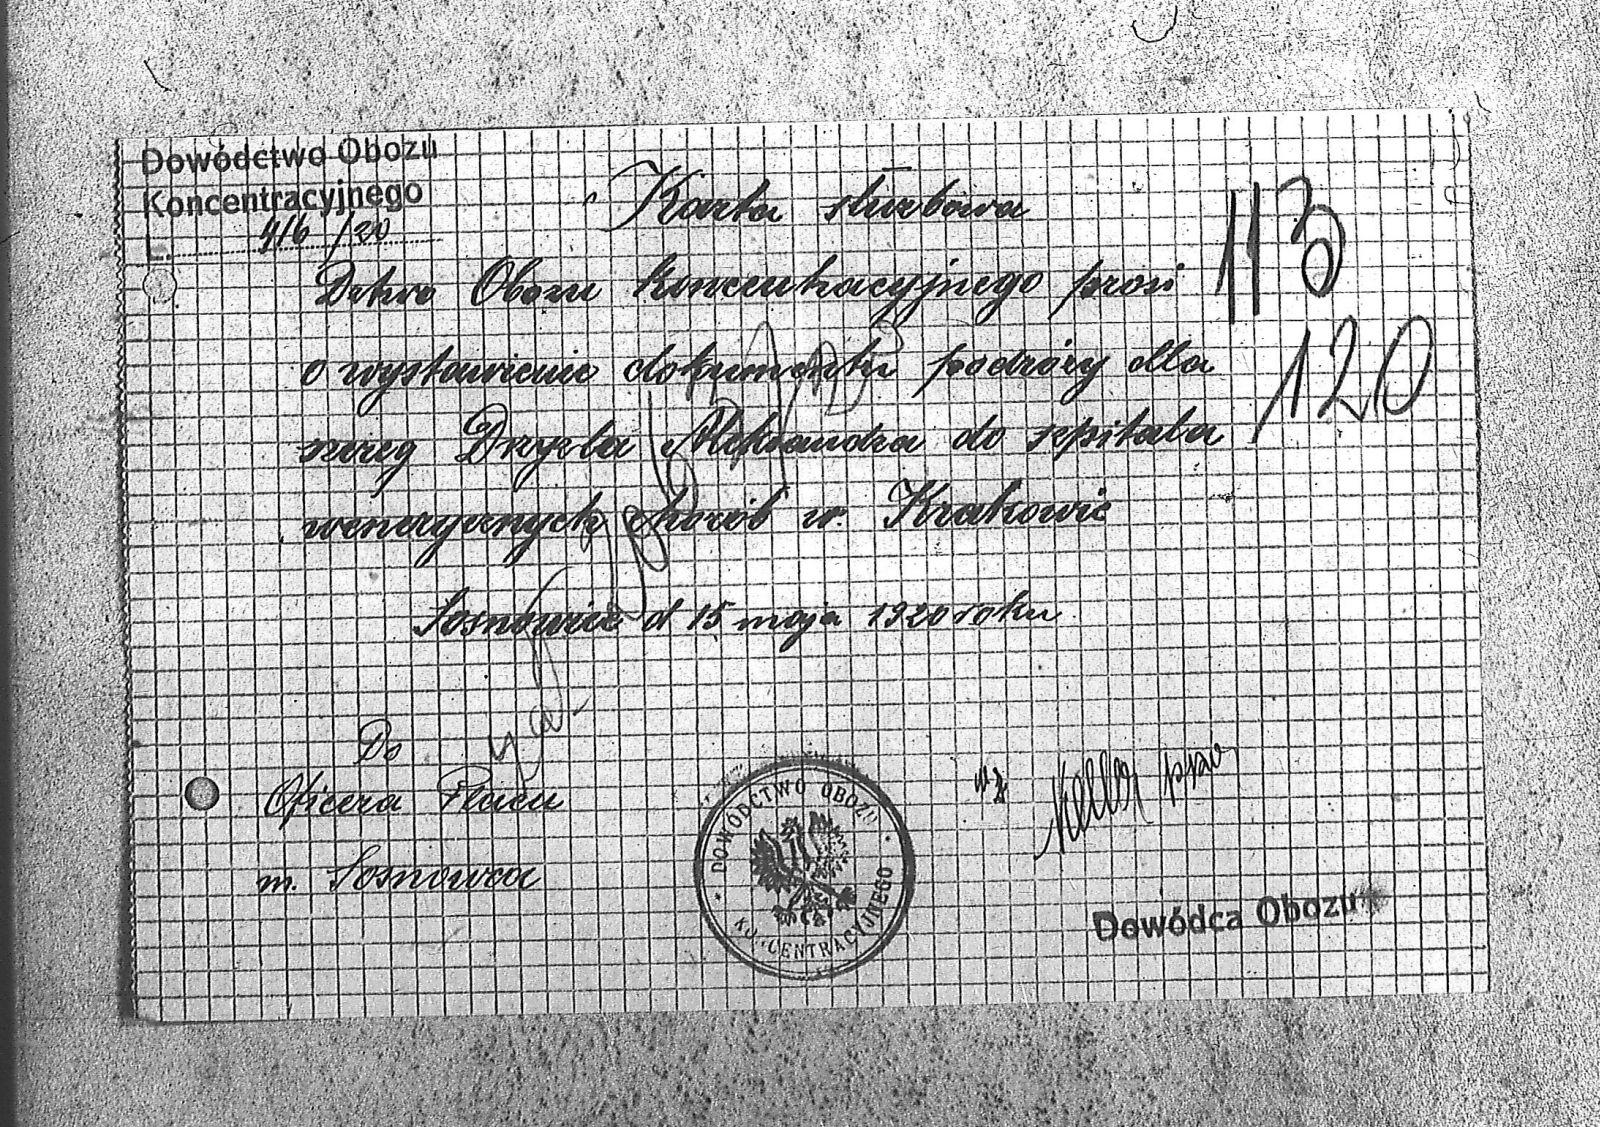 Dowództwo Obozu
Koncentracyjnego
L. 416/20
Karta służbowa
113
Dztwo Obozu Koncentracyjnego prosi
120
o wystawienie dokumentu podróży dla
szereg Dryzba Aleksandra do szpitala
wenerycznych chorób w. Krakowie
Sosnowiec d 15 maja 1920 roku
Do
Oficera Placu
m. Sosnowca
DOWÓDCTWO OBOZU
KONCENTRACYJNEGO
wz Keller ppor
Dowódca Obozu